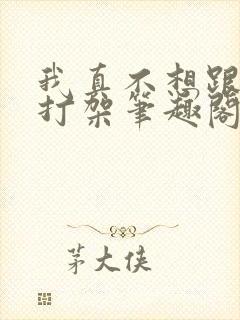 我真不想跟
打架笔趣阁
茅大侠